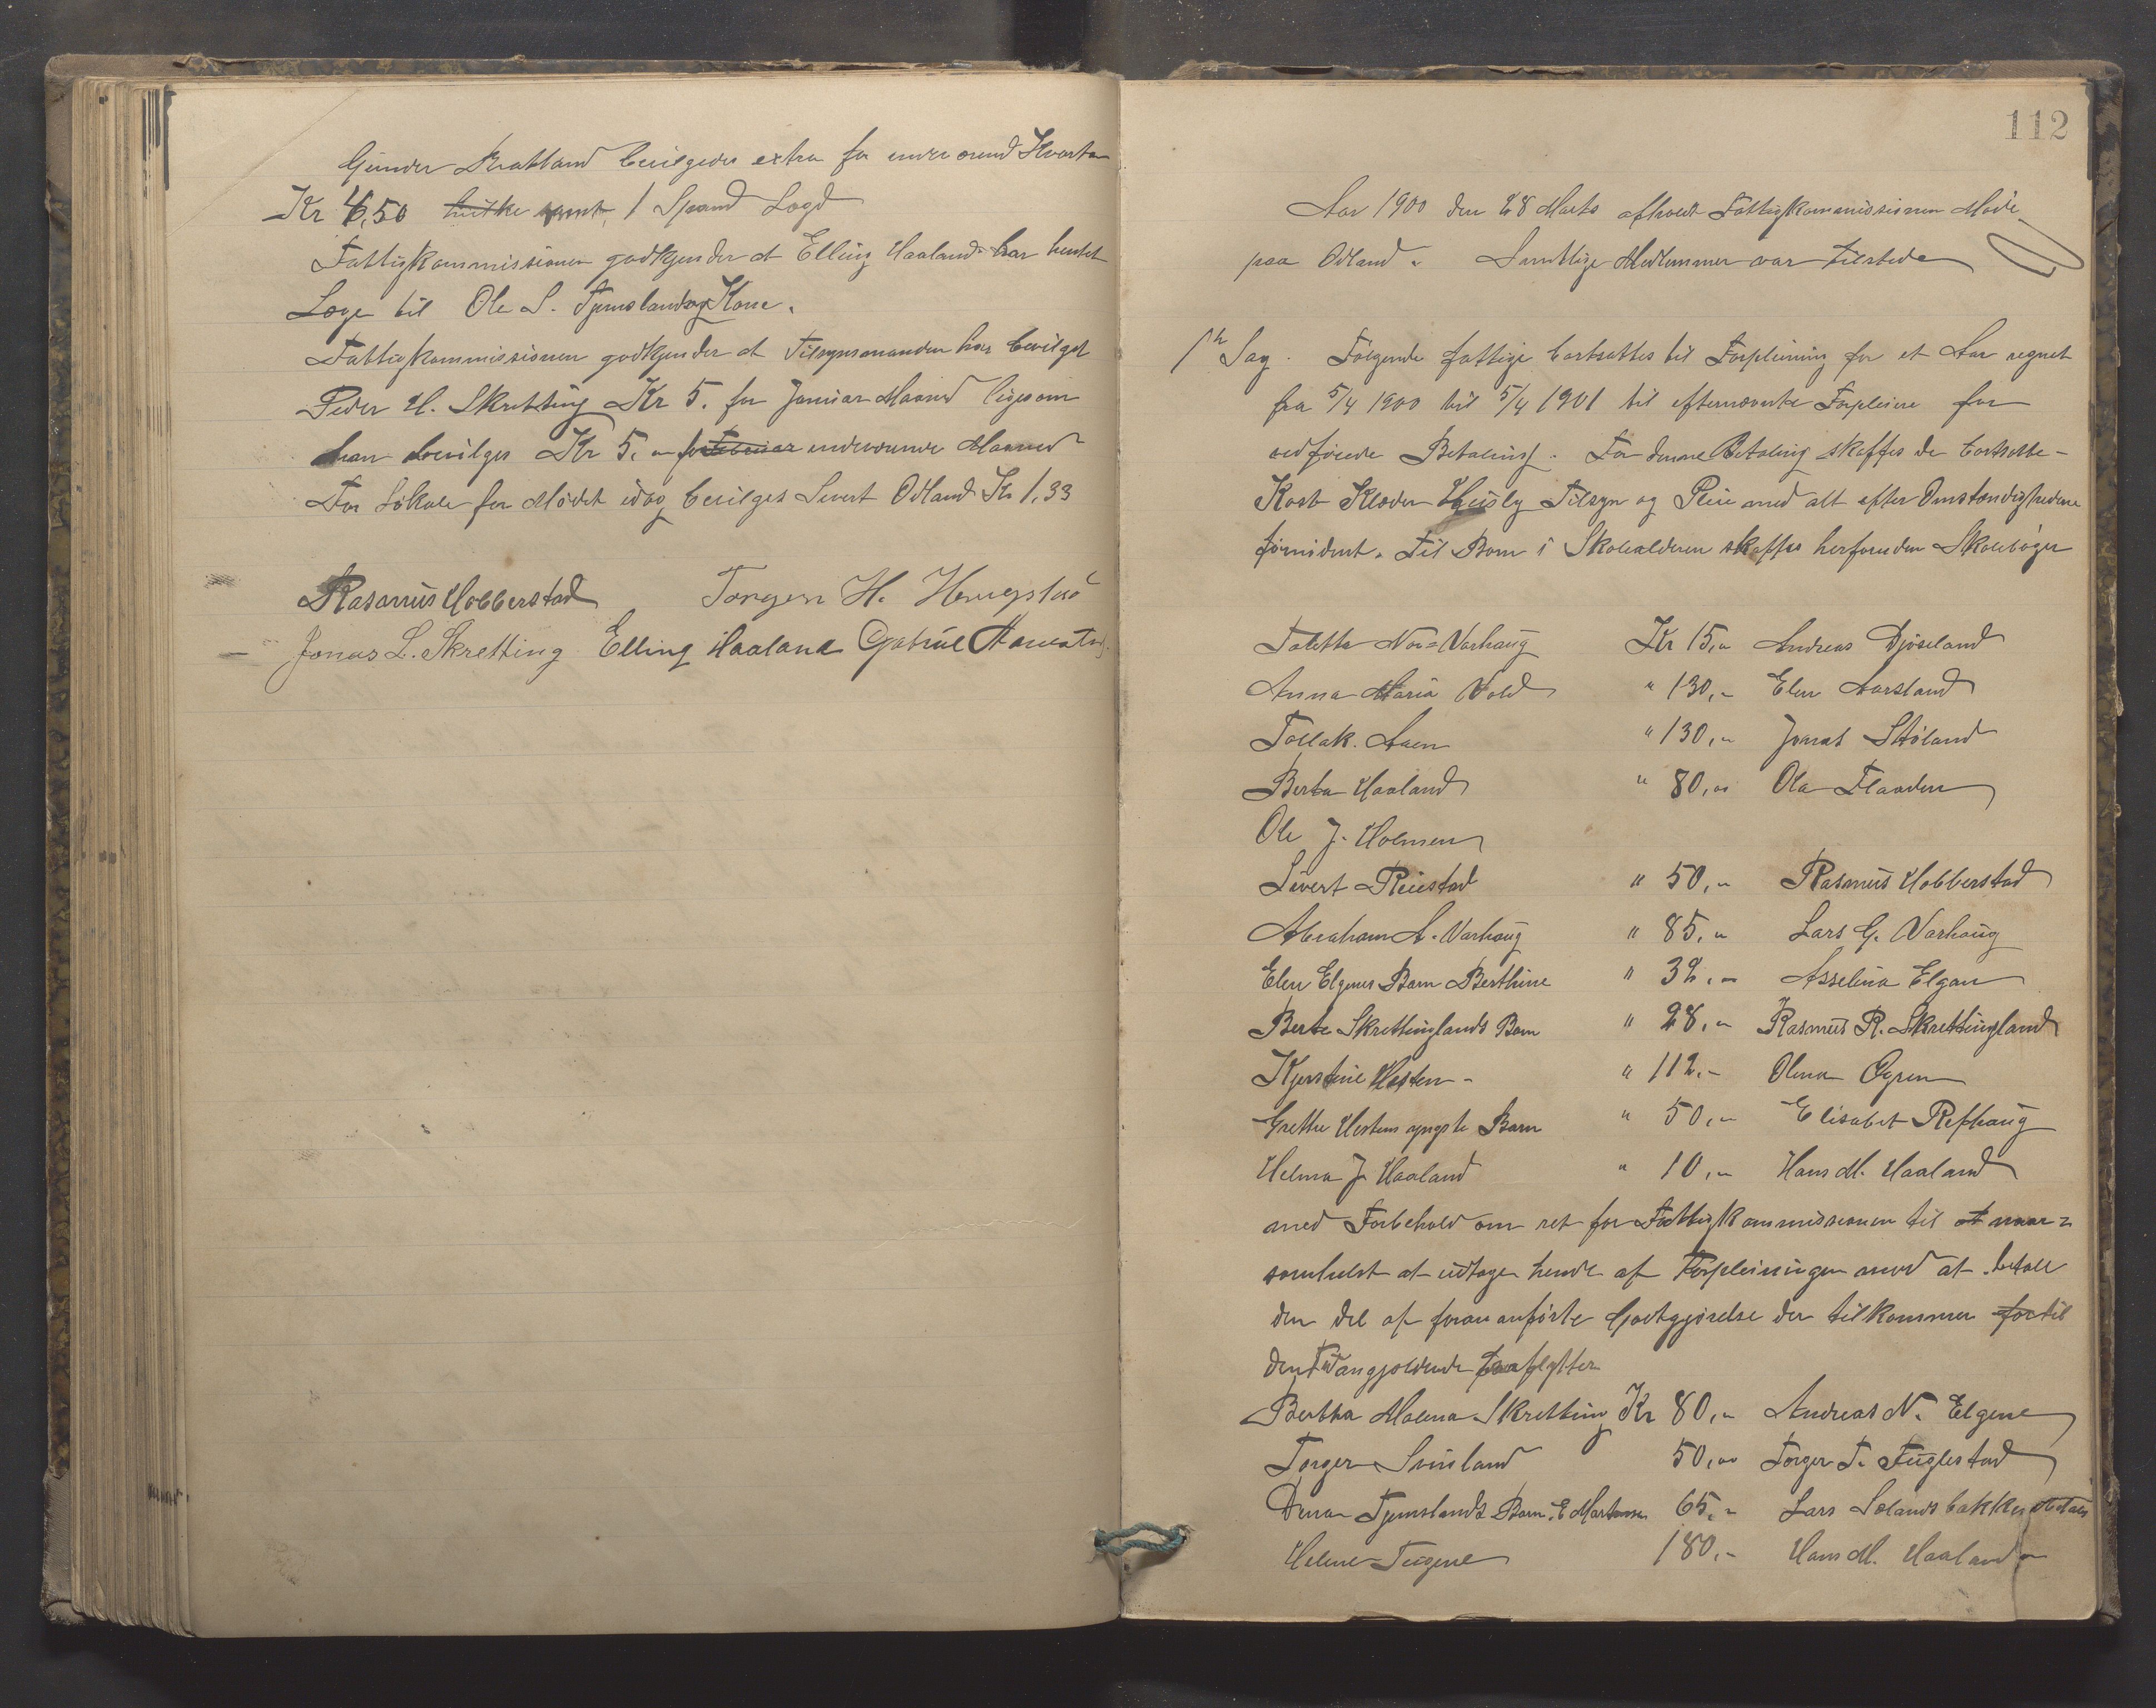 Gunder Bratland bevilgedes extra for
Kr 4,50 samt 1 Spand
Fattigkommissionen godkjender at Elling Haaland har hentet
Læge til Ole S. Tjemsland og Kone.
Fattigkommissionen godkjender at Tilsynsmanden har bevilget
Peder H. Skretting Kr 5. for Januar Maaned ligesom
han bevilges Kr 5. for Februar Maaned
For Lokale for Mödet idag bevilges Sivert Odland Kr 1,33
Rasmus Hobberstad Torger H.
Jonas L. Skretting Elling Haaland Gabriel
112
Aar 1900 den 28 Marts afholdt Fattigkommissionen Möde
paa Odland. Samtlige Medlemmer var tilstede
1te Sag. Følgende fattige bortsattes til Forpleining for et Aar regnet
fra 5/4 1900 til 5/4 1901 til efternævnte Forpleiere for
vedføiede Betaling. For denne Betaling skaffes de bortsatte
Kost Klæder Huusly Tilsyn og Pleie med alt efter Omstændighederne
fornødent. Til Børn i Skolealderen skaffes herforuden Skolebøger
Taletta Nor=Varhaug Kr 15,„ Andreas Djöseland
Anna Maria Vold " 130,- Elen Aarsland
Tollak Aaen " 130,„ Jonas Stöland
Berta Haaland " 80,00 Ola Flaaden
Ole J. Holmen
Sivert Reiestad " 50,„ Rasmus Hobberstad
Abraham A. Varhaug " 85,„ Lars G. Varhaug
Elen Elgenes Barn Berthine " 32,- Asselina Elgan
Berte Skrettinglands Barn " 28,„ Rasmus R. Skrettingland
Kjerstine Hesten - " 112.- Olena Ogren
Grethe Hestens yngste Barn " 50,- Elisabet Refhaug
Helma J. Haaland " 10,„ Hans M. Haaland
med Forbehold om ret for Fattigkommissionen til at naar=
somhelst at udtage hende af Forpleiningen mod at betale
den Del af foran anførte Godtgjørelse der tilkommer for til
den Tid angjældende fraflytter
Bertha Malena Skretting Kr 80,„ Andreas N. Elgene
Torger Svinland 50,00 Torger T. Fuglestad
Tjemslands Barn E. Martensen 65,- Lars Sælands bakken
Helene 180,- Hans M. Haaland